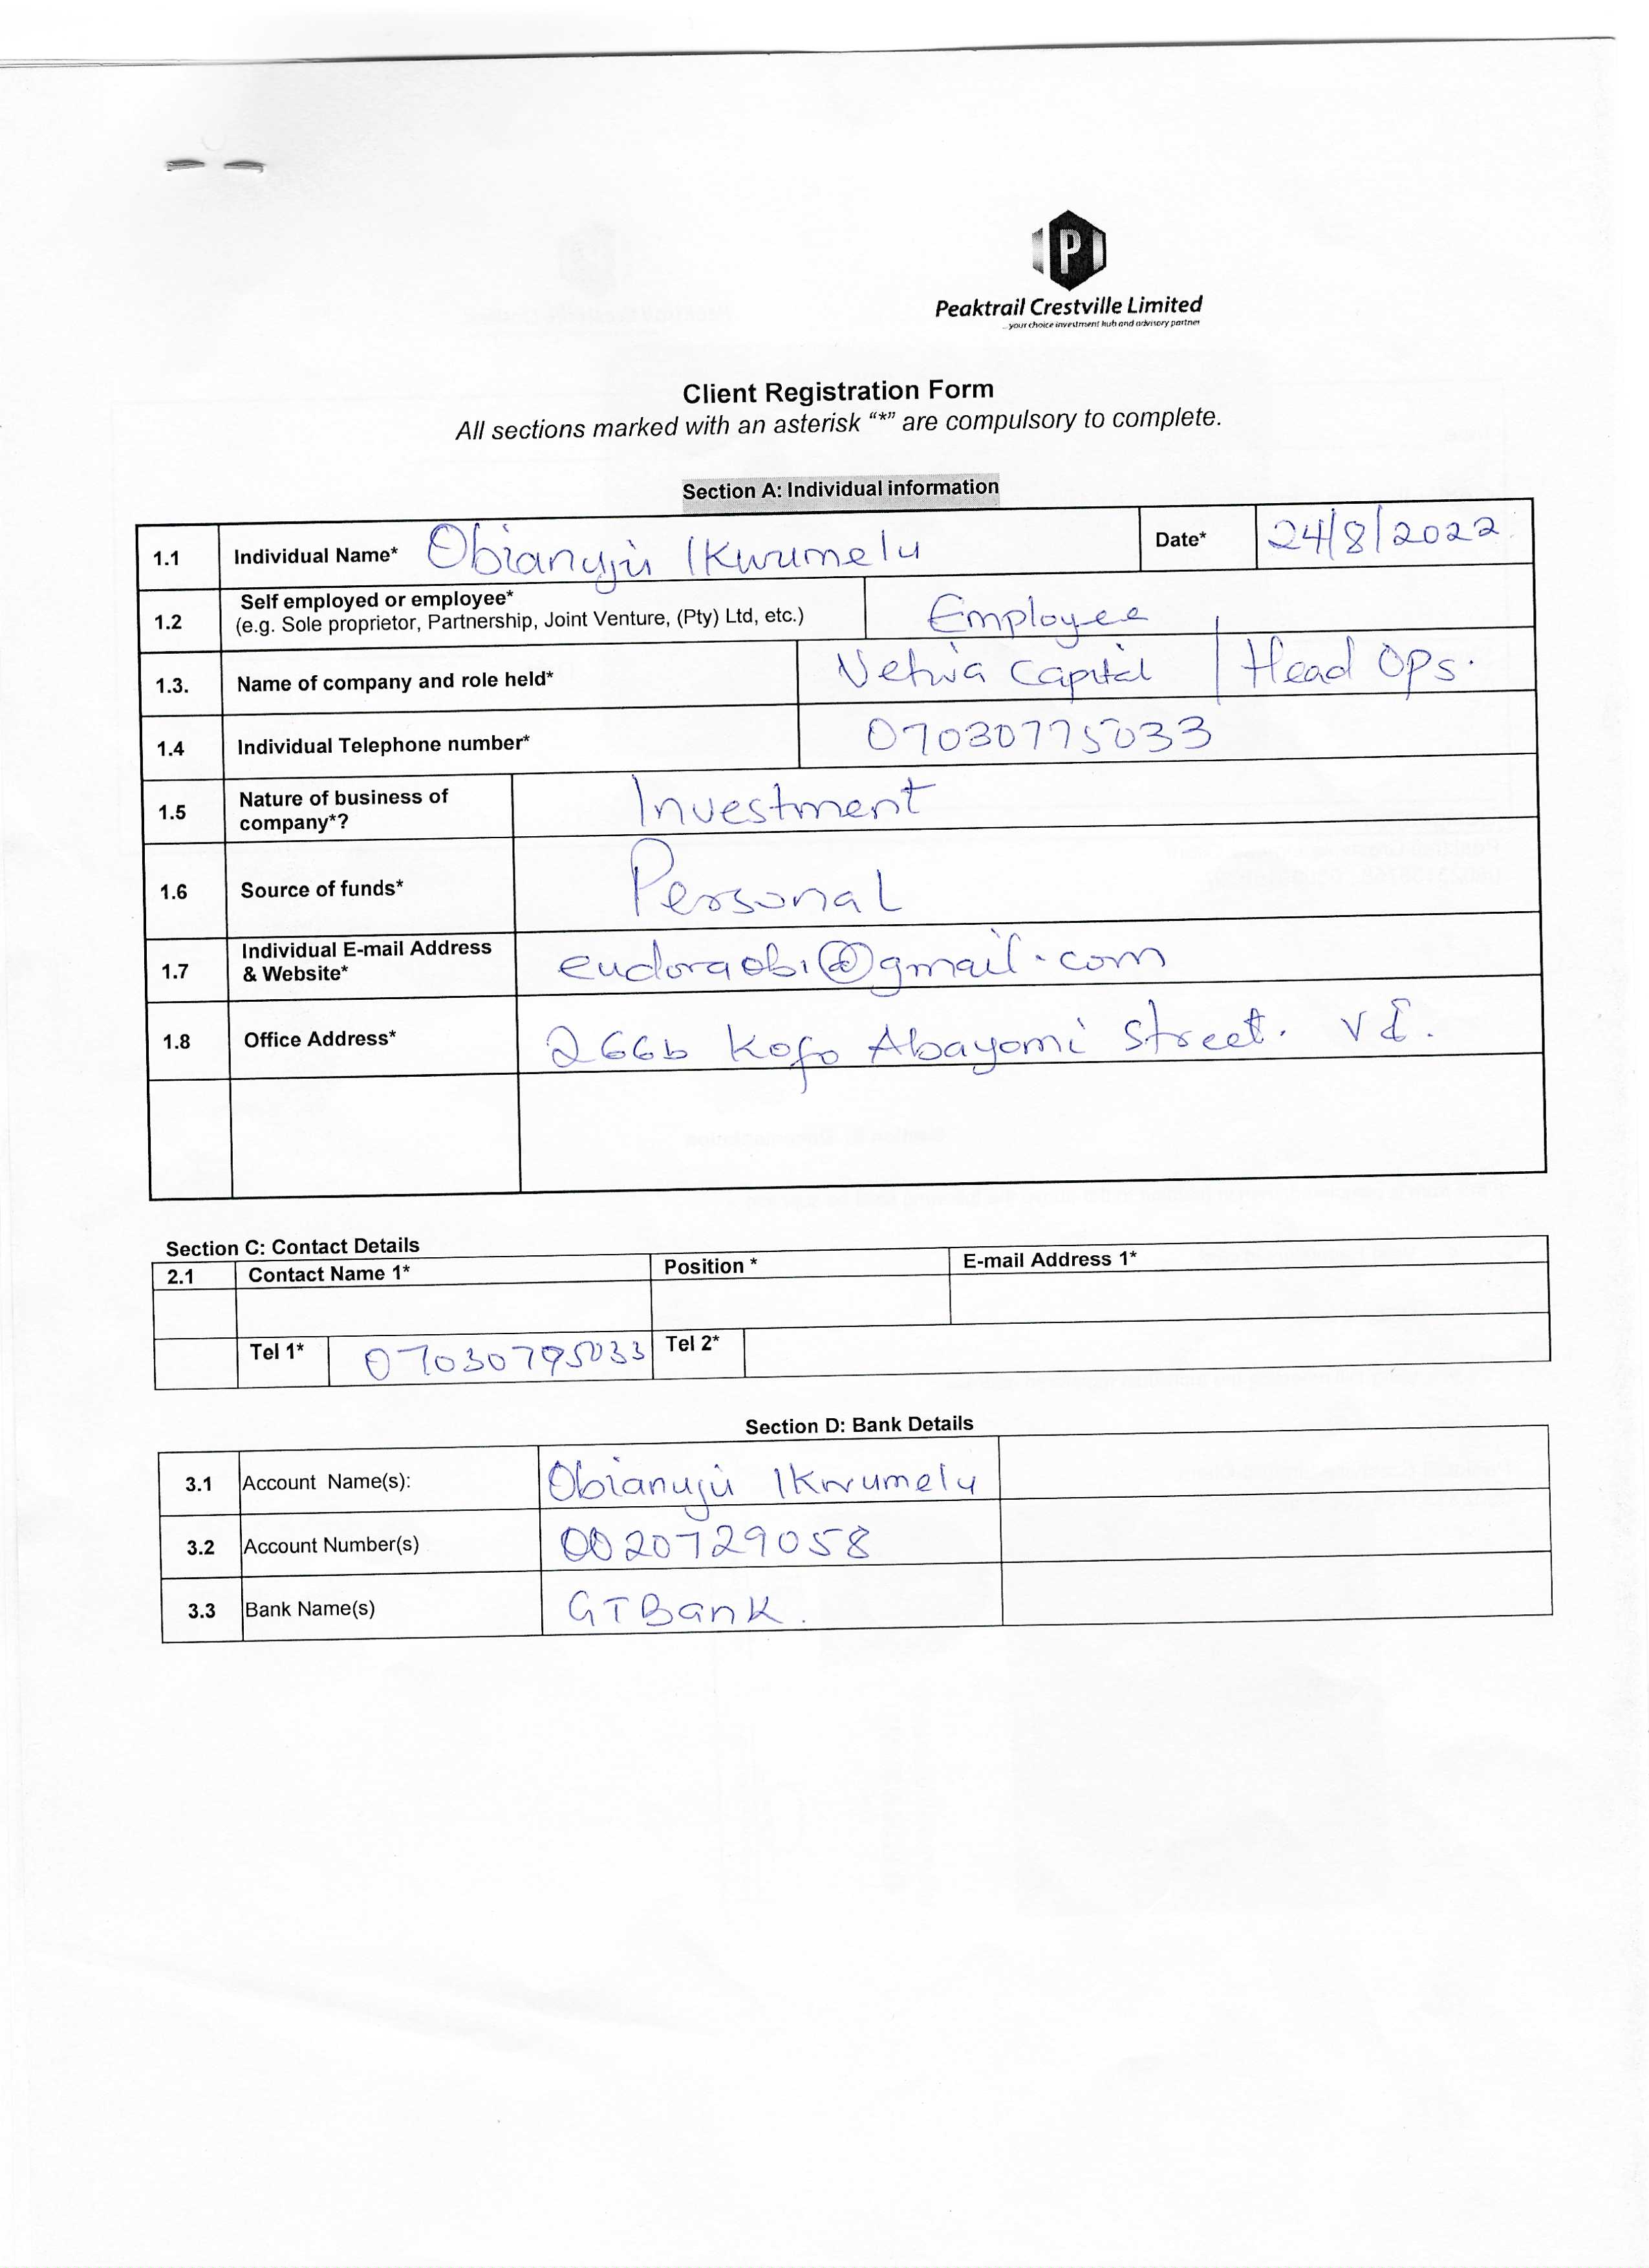 P
Peaktrail Crestville Limited
...your choice investment hub and advisory partner
Client Registration Form
All sections marked with an asterisk “*” are compulsory to complete.
Section A: Individual information
1.1 Individual Name* Obianuju Ikwumelu Date* 24/8/2022
1.2 Self employed or employee*
(e.g. Sole proprietor, Partnership, Joint Venture, (Pty) Ltd, etc.) Employee
1.3. Name of company and role held* Capital | Head Ops.
1.4 Individual Telephone number* 07030775033
1.5 Nature of business of
company*? Investment
1.6 Source of funds* Personal
1.7 Individual E-mail Address
& Website* eudoraobi@gmail.com
1.8 Office Address* 266b Kofo Abayomi Street. V I.
Section C: Contact Details
2.1 Contact Name 1* Position * E-mail Address 1*
Tel 1* 07030795033 Tel 2*
Section D: Bank Details
3.1 Account Name(s): Obianuju Ikwumelu
3.2 Account Number(s) 0020729058
3.3 Bank Name(s) GTBank.